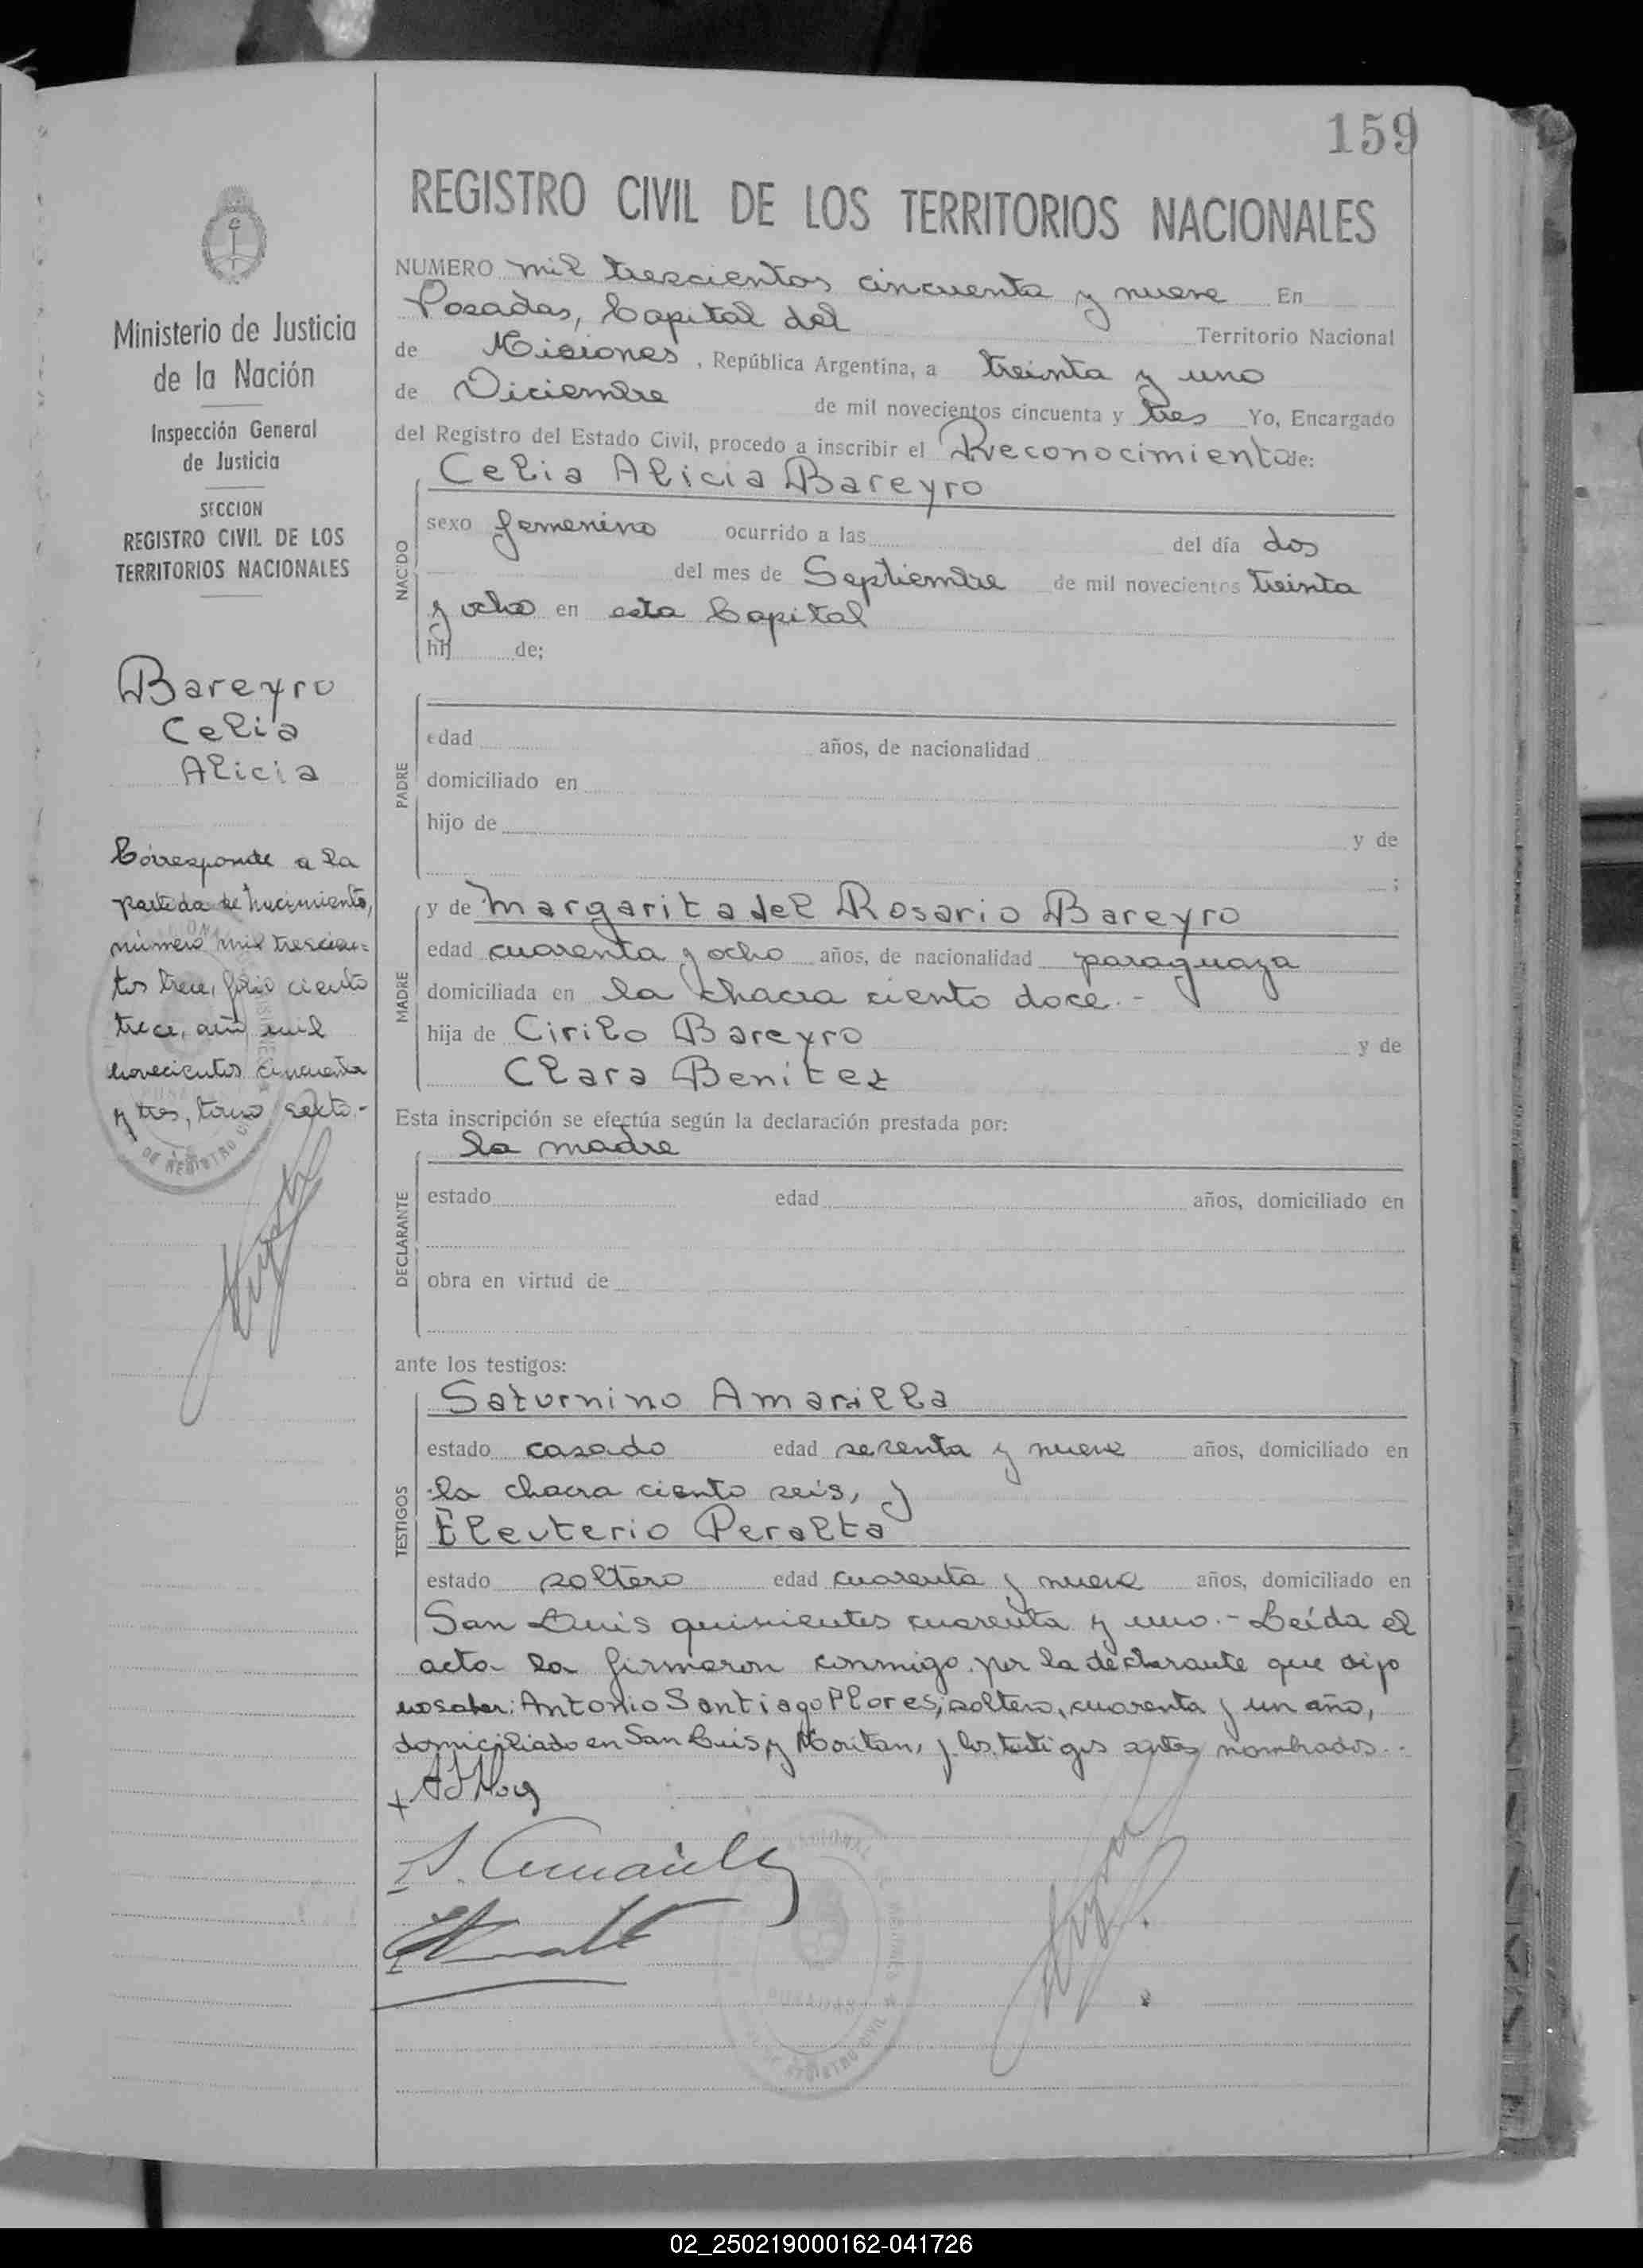 159
REGISTRO CIVIL DE LOS TERRITORIOS NACIONALES
Ministerio de Justicia
de la Nación
Inspección General
de Justicia
SECCION
REGISTRO CIVIL DE LOS
TERRITORIOS NACIONALES
Bareyro
Celia
Alicia
Corresponde a la
partida de nacimiento,
número mil trescien=
tos trece, folio ciento
trece, año mil
novecientos cincuenta
y tres, tomo sexto.-
DE REGISTRO CIVIL
NUMERO mil trescientos cincuenta y nueve En
Posadas, Capital del Territorio Nacional
de Misiones, República Argentina, a treinta y uno
de Diciembre de mil novecientos cincuenta y tres Yo, Encargado
del Registro del Estado Civil, procedo a inscribir el Reconocimiento de:
NACIDO
Celia Alicia Bareyro
sexo femenino ocurrido a las del día dos
del mes de Septiembre de mil novecientos treinta
y ocho en esta Capital
hij de;
PADRE
edad años, de nacionalidad
domiciliado en
hijo de y de
;
MADRE
y de Margarita del Rosario Bareyro
edad cuarenta y ocho años, de nacionalidad paraguaya
domiciliada en la chacra ciento doce.-
hija de Cirilo Bareyro y de
Clara Benitez
Esta inscripción se efectúa según la declaración prestada por:
DECLARANTE
la madre
estado edad años, domiciliado en
obra en virtud de
ante los testigos:
TESTIGOS
Saturnino Amarilla
estado casado edad y nueve años, domiciliado en
la chacra ciento seis, y
Eleuterio Peralta
estado soltero edad cuarenta y nueve años, domiciliado en
San Luis quinientos cuarenta y uno.- Leída el
acta la firmaron conmigo por la declarante que dijo
no saber: Antonio Santiago Flores, soltero, cuarenta y un año,
domiciliado en San Luis y Moritan, y los testigos antes nombrados.-
POSADAS
REGISTRO CIVIL
02_250219000162-041726